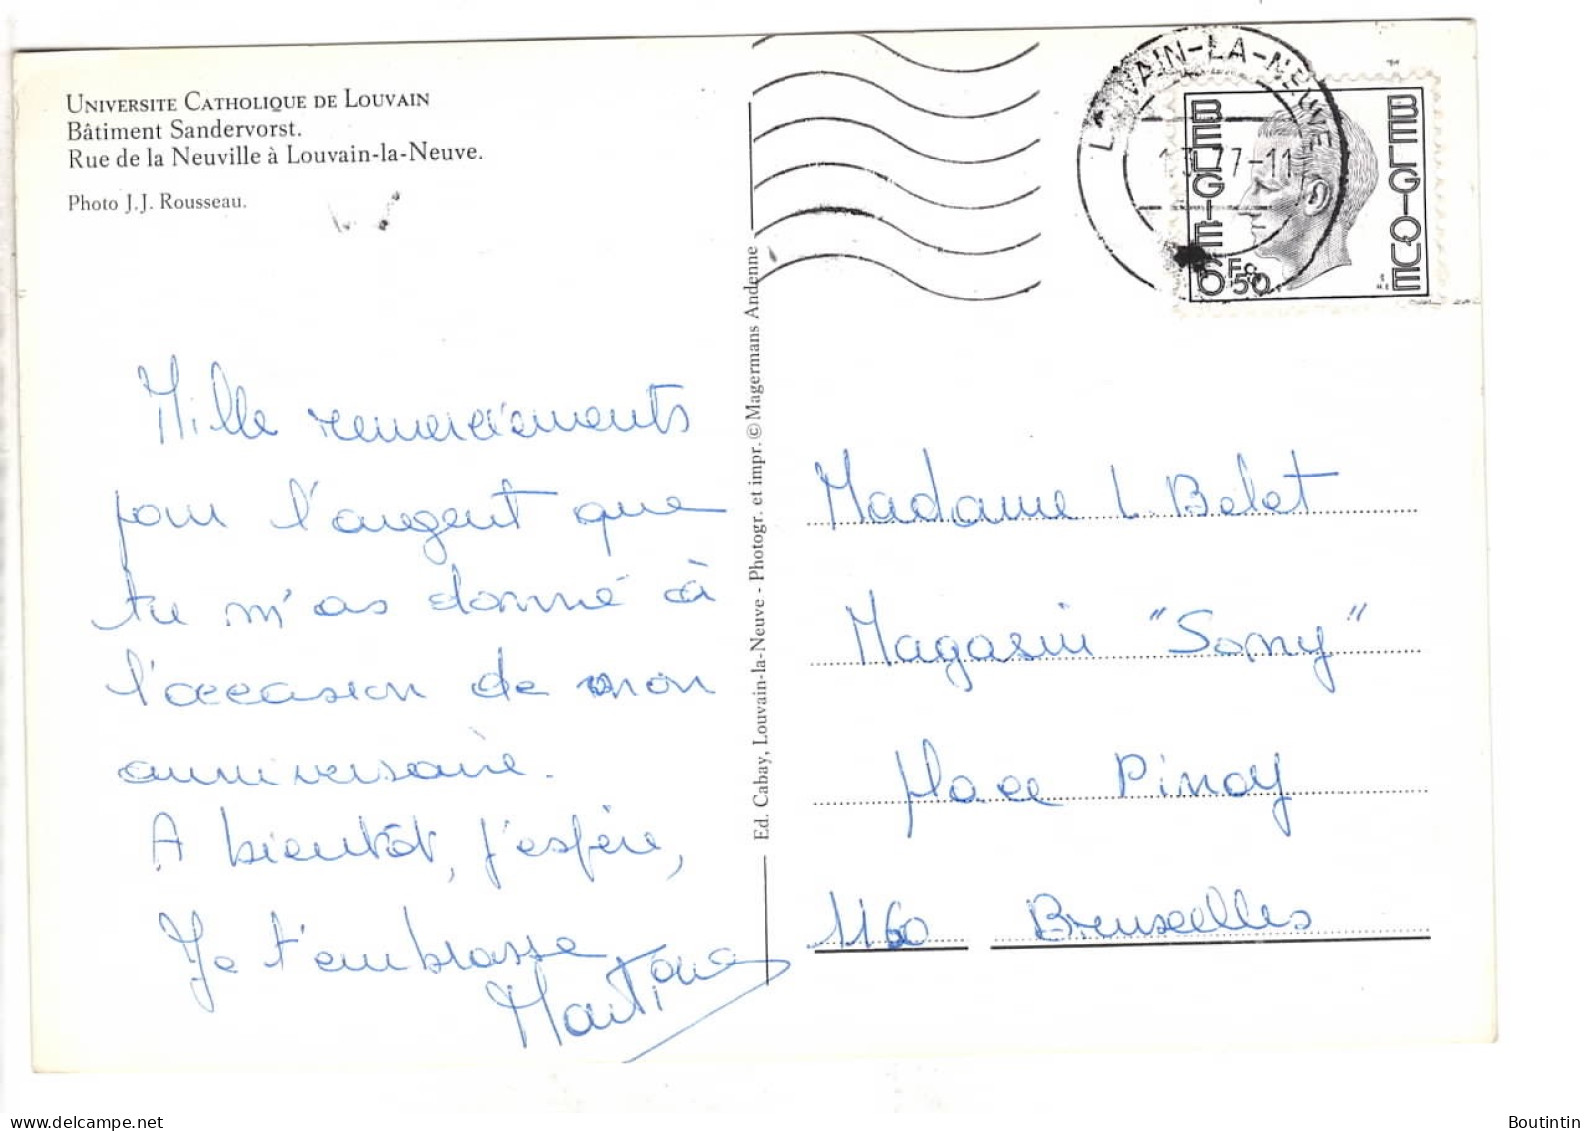 UNIVERSITE CATHOLIQUE DE LOUVAIN
Bâtiment Sandervorst.
Rue de la Neuville à Louvain-la-Neuve.
Photo J.J. Rousseau.
Mille remerciements
pour l'argent que
tu m'as donné à
l'occasion de mon
anniversaire.
A bientôt, j'espère,
Je t'embrasse
Ed. Cabay, Louvain-la-Neuve - Photogr. et impr. © Magermans Andenne
LOUVAIN-LA-NEUVE
77-11
BELGIE
BELGIQUE
6 F 50
Madame L. Belet
Magasin "Sony"
place Pinoy
1160 Bruxelles
Boutintin